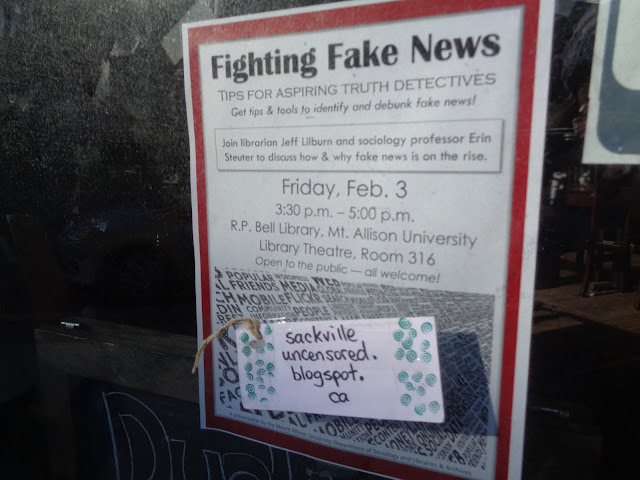 Fighting Fake News
TIPS FOR ASPIRING TRUTH DETECTIVES
Get tips & tools to identify and debunk fake news!
Join librarian Jeff Lilburn and sociology professor Erin
Steuter to discuss how & why fake news is on the rise.
Friday, Feb. 3
3:30 p.m. – 5:00 p.m.
R.P. Bell Library, Mt. Allison University
Library Theatre, Room 316
Open to the public — all welcome!
POPULAR
FRIENDS MEDIA WEB
MOBILE FLICKR
COMMUNITY PEOPLE
sackville
uncensored.
blogspot.
ca
A presentation by the Mount Allison University Department of Sociology and Libraries & Archives